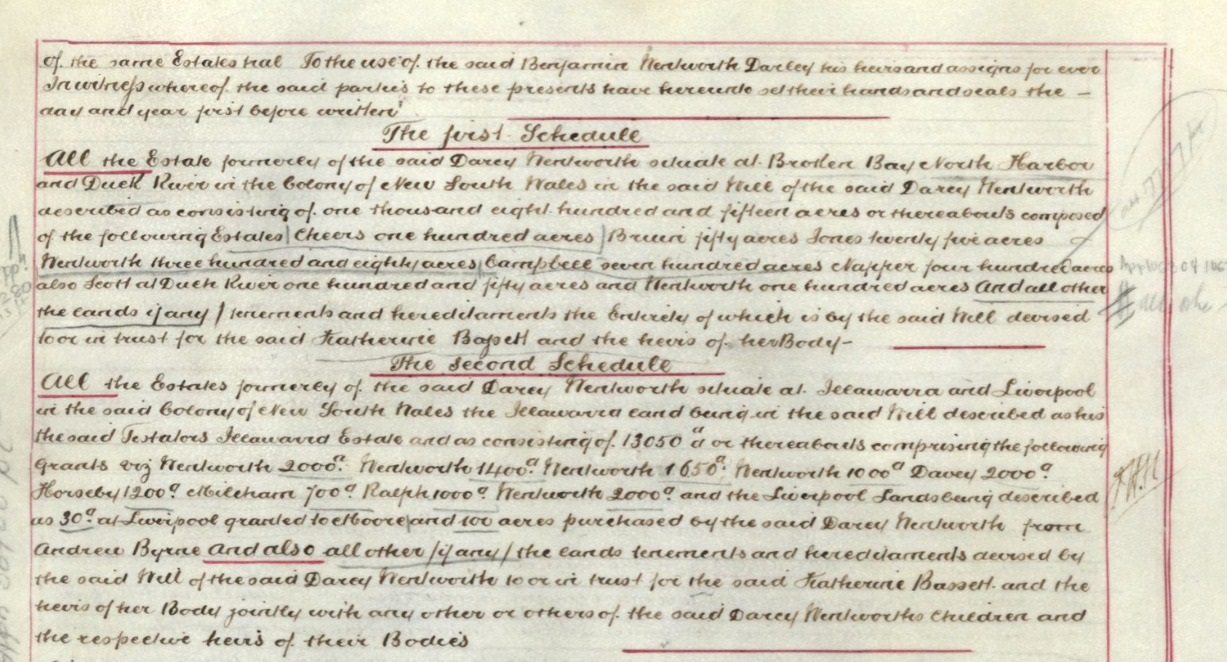 of the same Estates tail To the use of the said Benjamin Wentworth Darley his heirs and assigns for ever
In witness whereof the said parties to these presents have hereunto set their hands and seals the –
day and year first before written
The first Schedule
All the Estate formerly of the said Darcy Wentworth situate at Broken Bay North Harbor
and Duck River in the Colony of New South Wales in the said Will of the said Darcy Wentworth
described as consisting of one thousand eight hundred and fifteen acres or thereabouts composed
of the following Estates Cheers one hundred acres Bruin fifty acres Jones twenty five acres
Wentworth three hundred and eighty acres Campbell seven hundred acres Napper four hundred acres
also Scott at Duck River one hundred and fifty acres and Wentworth one hundred acres And all other
the lands if any / tenements and hereditaments the Entirety of which is by the said Will devised
to or in trust for the said Katherine Bassett and the heirs of her Body –
The second Schedule
All the Estates formerly of the said Darcy Wentworth situate at Illawarra and Liverpool
in the said Colony of New South Wales the Illawarra land being in the said Will described as his
the said Testators Illawarra Estate and as consisting of 13050 a or thereabouts comprising the following
grants viz Wentworth 2000a. Wentworth 1400a. Wentworth 1650a. Wentworth 1000a Davey 2000a.
Horseby 1200a. Mileham 700a. Ralph 1000a. Wentworth 2000a. and the Liverpool Lands being described
as 30a. at Liverpool granted to Moore and 100 acres purchased by the said Darcy Wentworth from
Andrew Byrne And also all other / if any / the lands tenements and hereditaments devised by
the said Will of the said Darcy Wentworth to or in trust for the said Katherine Bassett and the
heirs of her Body jointly with any other or others of the said Darcy Wentworths Children and
the respective heirs of their Bodies